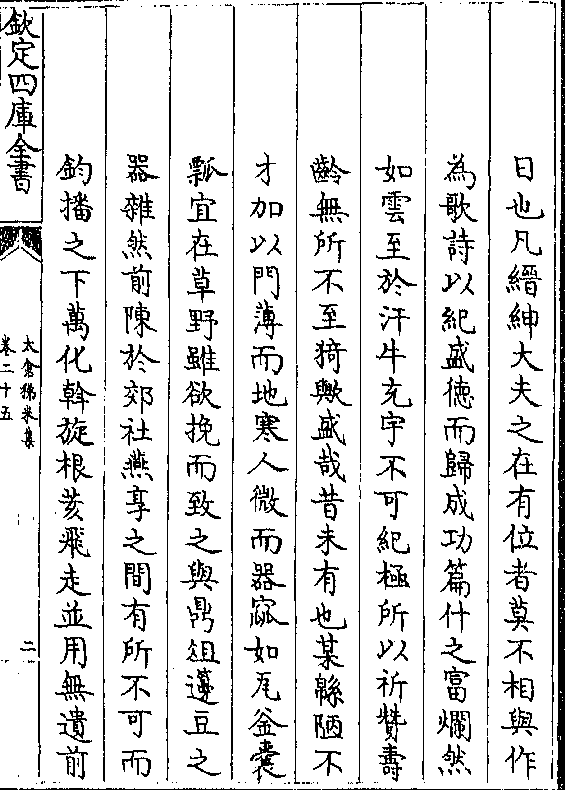 日也凡縉紳大夫之在有位者莫不相與作
為歌詩以紀盛德而歸成功篇什之富爛然
如雲至於汗牛充宇不可紀極所以祈贊壽
齡無所不至猗歟盛哉昔未有也某緜陋不
才加以門薄而地寒人微而器窳如瓦釡囊
瓢宜在草野雖欲挽而致之與鼎俎籩豆之
器雜然前陳於郊社燕享之間有所不可而
鈞播之下萬化斡旋根荄飛走並用無遺前
欽定四庫全書
太倉稊米集
卷二十五
二